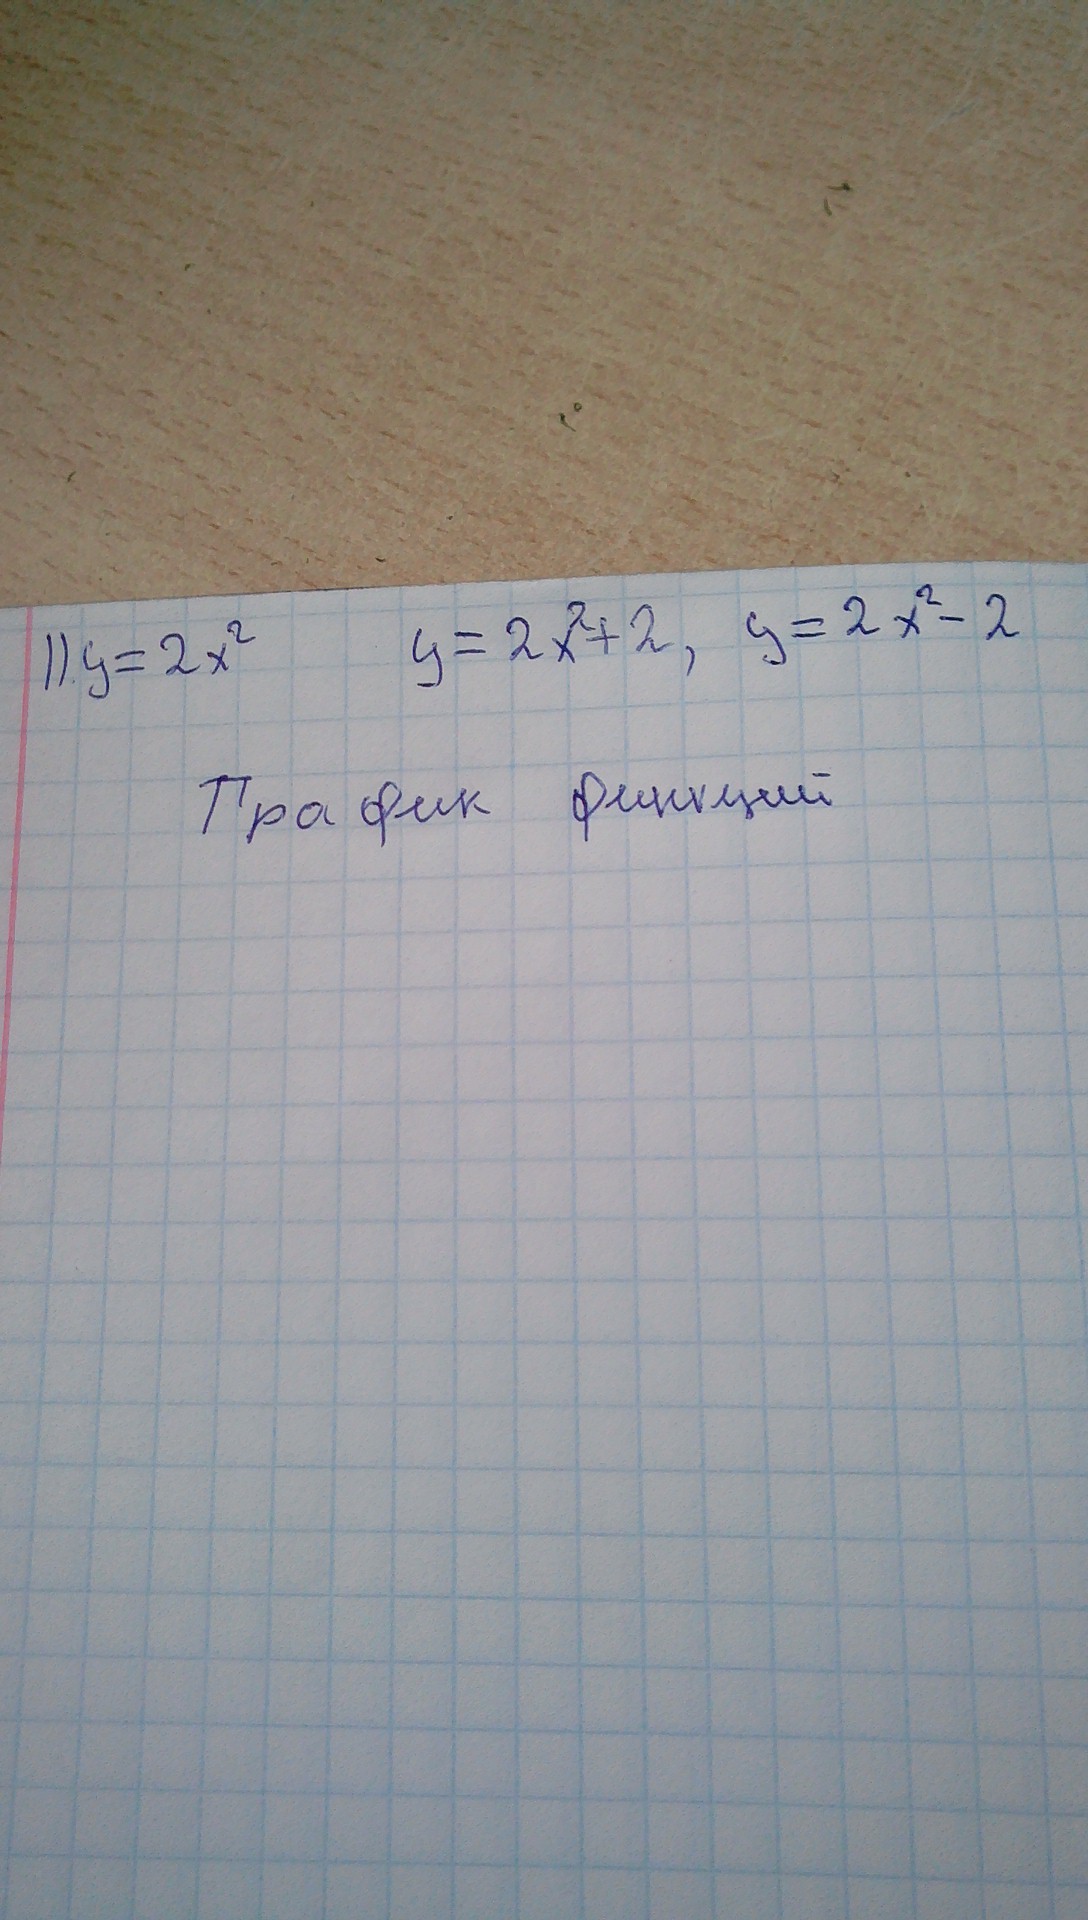 1). y = 2x² y = 2x² + 2, y = 2x² - 2
График функций